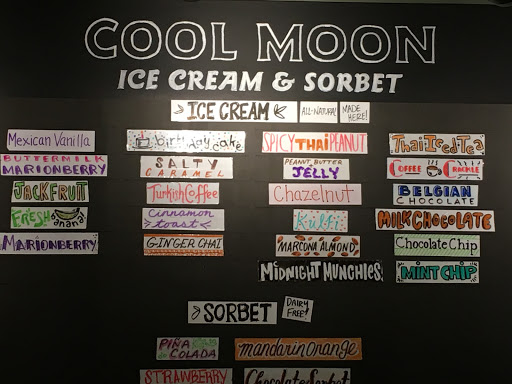 COOL MOON
ICE CREAM & SORBET
ICE CREAM
ALL-NATURAL!
MADE HERE!
Mexican Vanilla
BUTTERMILK
MARIONBERRY
JACKFRUIT
FRESH banana!
MARIONBERRY
birthday cake
SALTY
CARAMEL
Turkish Coffee
Cinnamon
toast
GINGER CHAI
SPICY THAI PEANUT
PEANUT BUTTER
JELLY
Chazelnut
Kulfi
MARCONA ALMOND
MIDNIGHT MUNCHIES
Thai Iced Tea
COFFEE CRACKLE
BELGIAN
CHOCOLATE
MILK CHOCOLATE
Chocolate Chip
MINT CHIP
SORBET
DAIRY FREE!
PIÑA
COLADA
mandarin orange
STRAWBERRY
Chocolate Sorbet